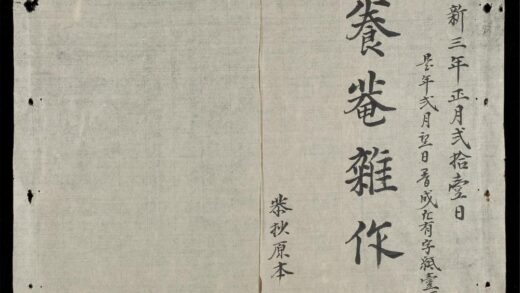 新三年正月弍拾壹日
是年弍月日成凢有字紙壹
養菴雜作
恭抄原本